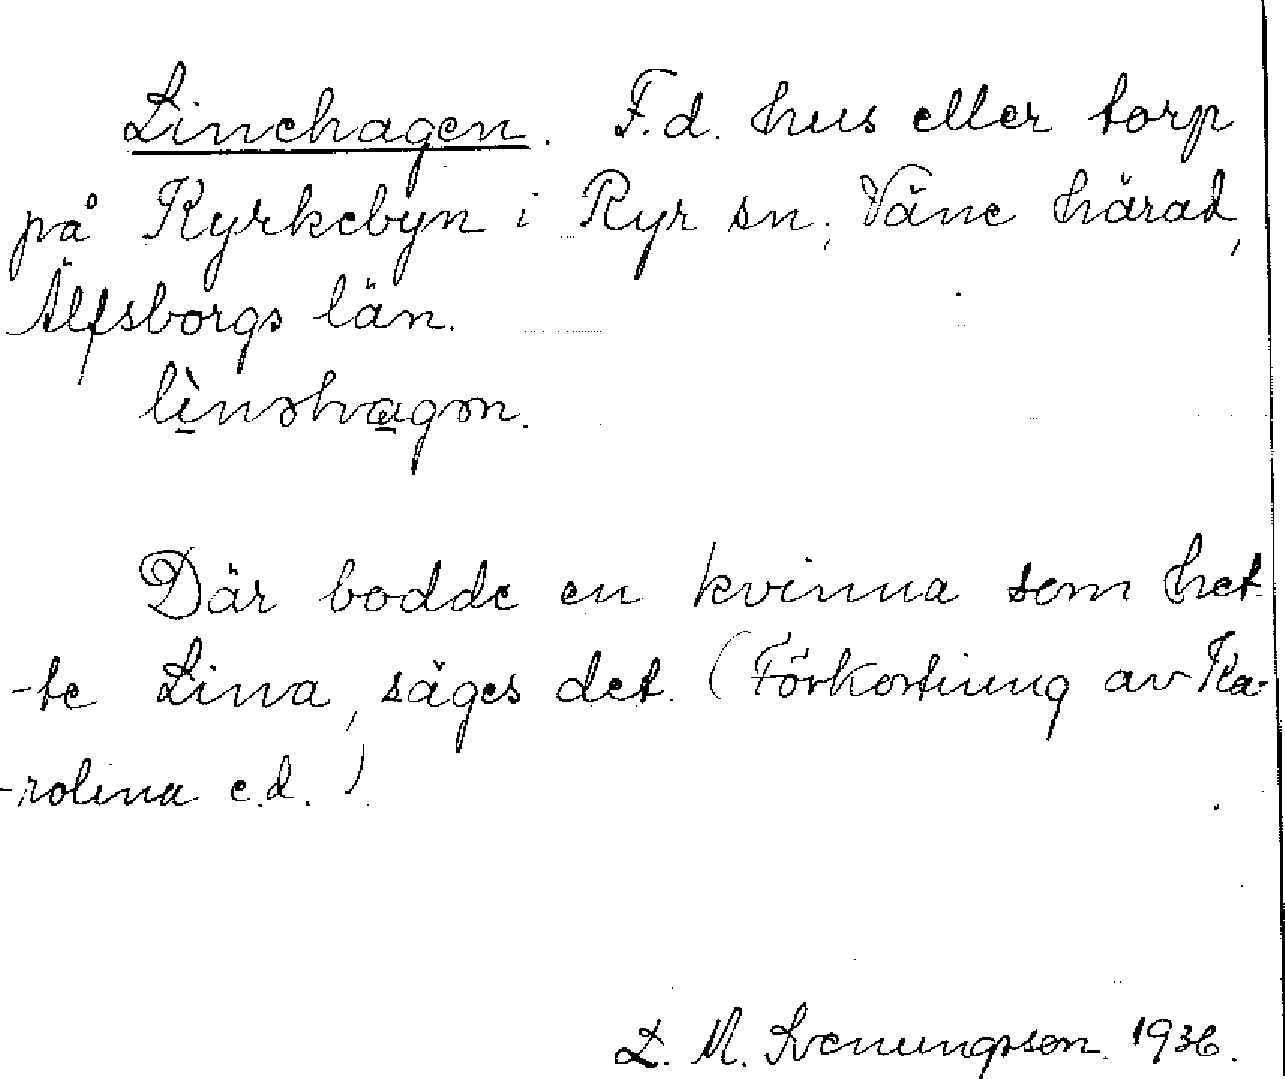 Linehagen. F.d. hus eller torp
på Kyrkebyn i Ryr sn, Väne härad,
Älfsborgs län.
lìnəhagən.
Där bodde en kvinna som het-
-te Lina, säges det. (Förkortning av Ka-
-rolina e.d.)
L. M. Svenungsson. 1936.